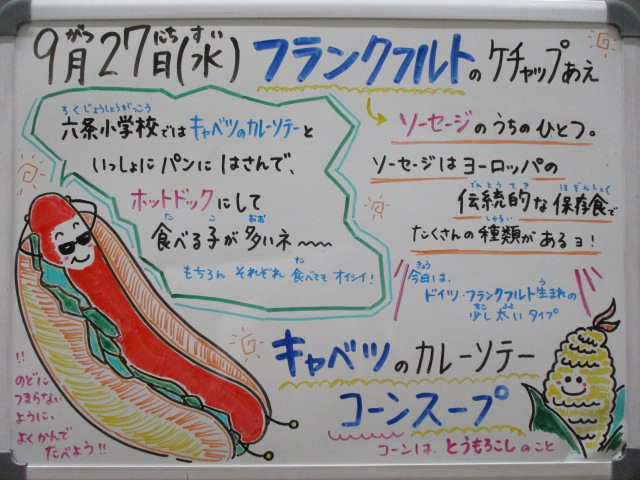 9月27日(水) フランクフルトのケチャップあえ
がつ にち すい
六条小学校ではキャベツのカレーソテーと
ろくじょうしょうがっこう
いっしょにパンにはさんで、
ホットドックにして
食べる子が多いネ〜〜
た こ おお
もちろん それぞれ 食べても オイシイ!
た
ソーセージのうちのひとつ。
ソーセージはヨーロッパの
伝統的な保存食で
でんとうてき ほぞんしょく
たくさんの種類があるヨ!
しゅるい
今日は、
きょう
ドイツ・フランクフルト生まれの
う
少し太いタイプ
すこ ふと
キャベツのカレーソテー
コーンスープ
コーンは、とうもろこしのこと
!!
のどに
つまらない
ように、
よくかんで
たべよう!!